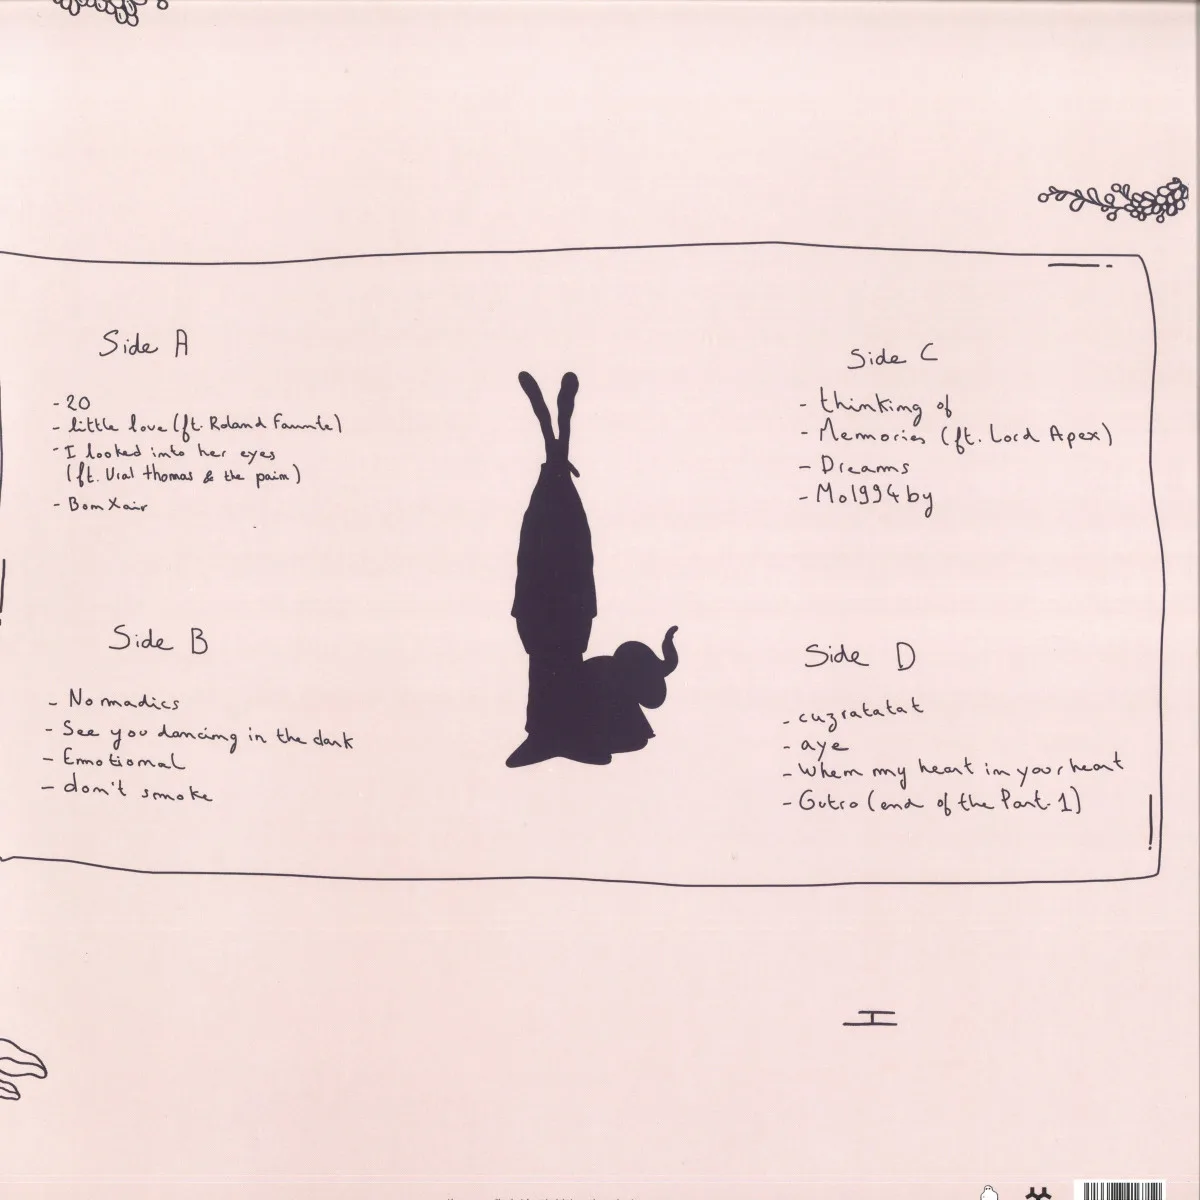 Side A
- 20
- little love (ft. Roland Faunte)
- I looked into her eyes
(ft. Ural thomas & the pain)
- BomXair
Side B
- Nomadics
- See you dancing in the dark
- Emotional
- don't smoke
Side C
- thinking of
- Memories (ft. Lord Apex)
- Dreams
- Mo1994by
Side D
- cuzratatat
- aye
- When my heart in your heart
- Outro (end of the Part. 1)